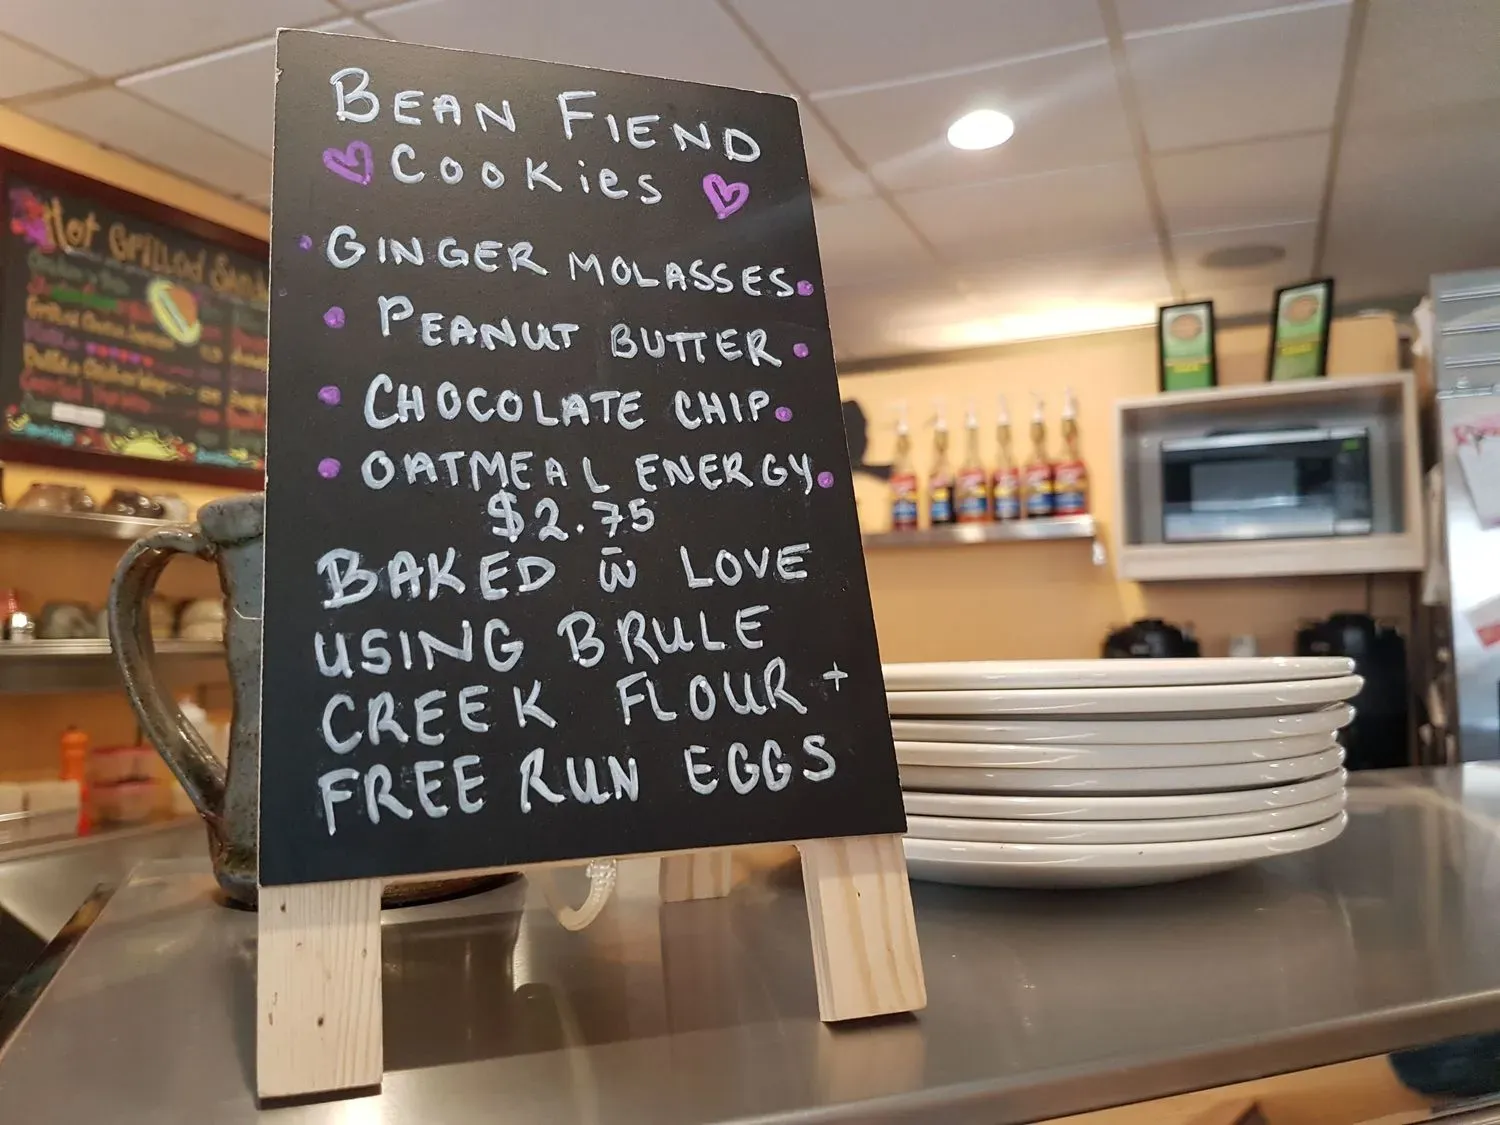 BEAN FIEND
COOKies
GINGER MOLASSES
PEANUT BUTTER
CHOCOLATE CHIP
OATMEAL ENERGY
$2.75
BAKED w̄ LOVE
USING BRULE
CREEK FLOUR +
FREE RUN EGGS
Hot Grilled